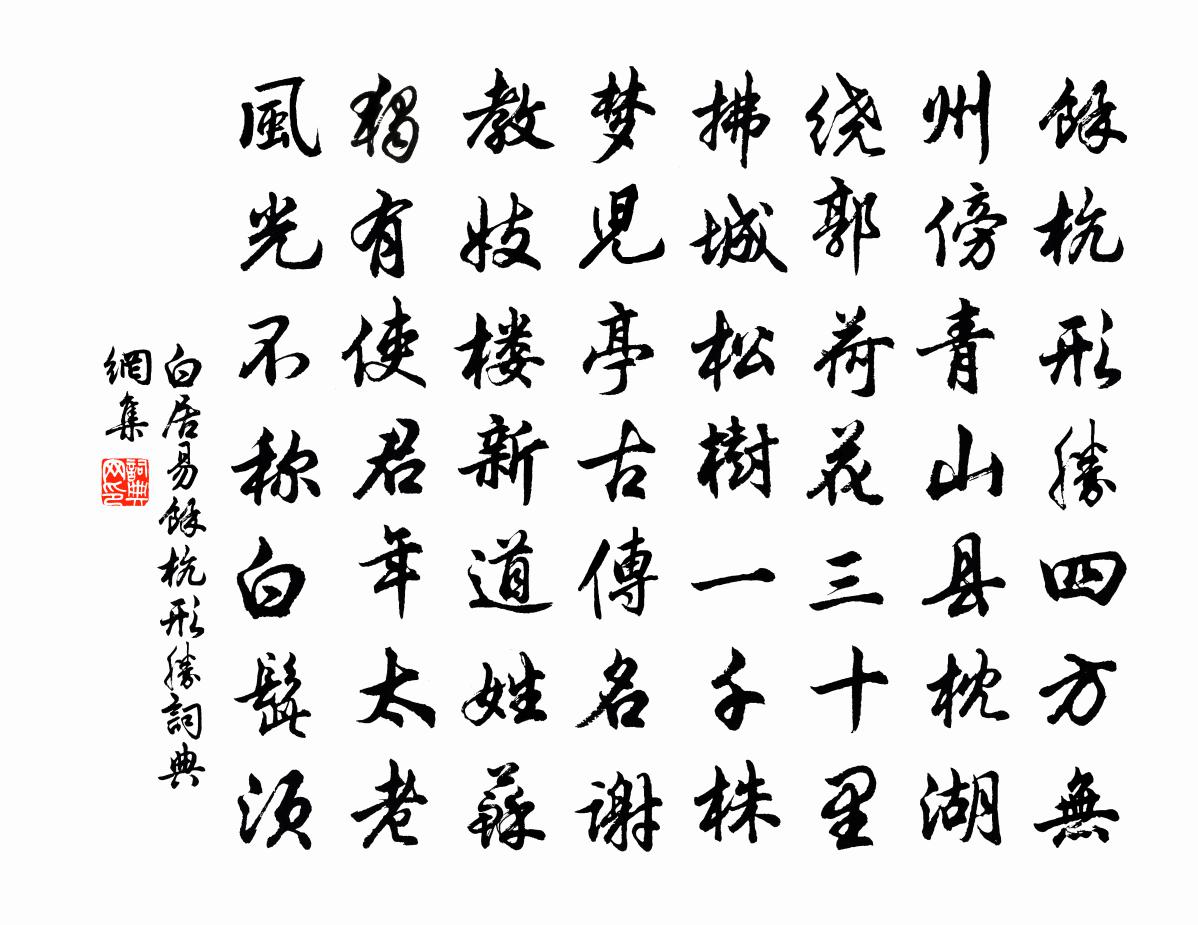 餘杭形勝四方無
州傍青山县枕湖
绕郭荷花三十里
拂城松樹一千株
梦児亭古傳名谢
教妓楼新道姓蘇
獨有使君年太老
風光不称白髭须
白居易餘杭形勝詞典
網集
詞典
网印